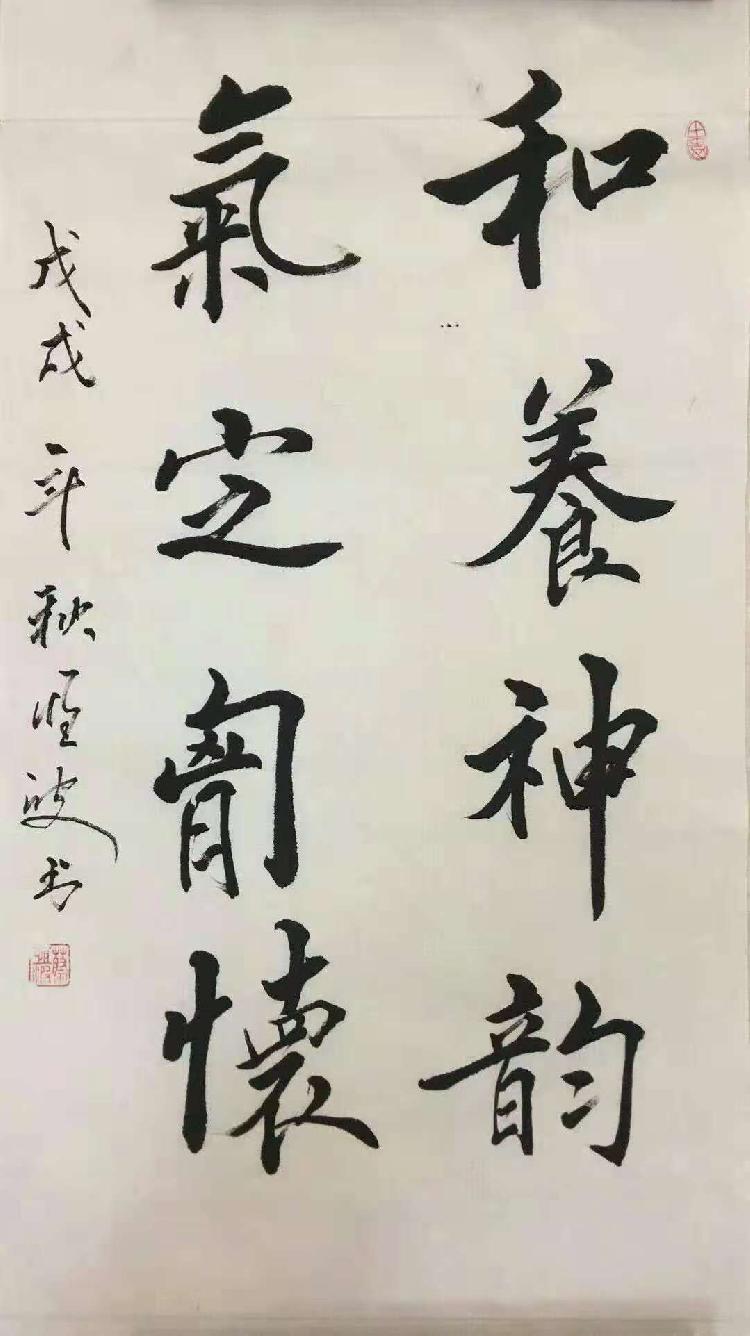 和養神韵
氣定胷懷
戊戌年秋恆波书